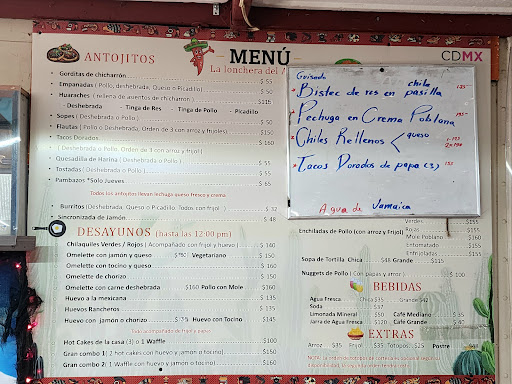 MENÚ
CDMX
La lonchera del
ANTOJITOS
Gorditas de chicharrón $ 55
Empanadas ( Pollo, deshebrada, Queso o Picadillo) $ 50
Huaraches ( rellena de asientos de chicharrón ) $115
- Deshebrada - Tinga de Res - Tinga de Pollo - Picadillo
Sopes ( Deshebrada o Pollo ) $ 50
Flautas ( Pollo o Deshebrada, Orden de 3 con arroz y frijoles) $150
Tacos Dorados $ 160
( Deshebrada o Pollo. Orden de 3 con arroz y frijol )
Quesadilla de Harina ( Deshebrada o Pollo ) $ 55
Tostadas ( Deshebrada o Pollo ) $ 55
Pambazos *Solo Jueves $ 65
Todos los antojitos llevan lechuga queso fresco y crema
Burritos (Deshebrada, Queso o Picadillo. Todos con frijol ) $ 32
Sincronizada de Jamón $ 48
DESAYUNOS (hasta las 12:00 pm)
Chilaquiles Verdes / Rojos ( Acompañado con frijol y huevo ) $ 140
Omelette con jamón y queso Vegetariano $ 150
Omelette con tocino y queso $ 160
Omelette de chorizo $ 150
Omelette con carne deshebrada $160 Pollo con Mole $ 160
Huevo a la mexicana $ 135
Huevos Rancheros $ 135
Huevo con jamón o chorizo Huevo con Tocino $145
Hot Cakes de la casa (3) o 1 Waffle $100
Gran combo 1 ( 2 hot cakes con huevo y jamón o tocino) $150
Gran combo 2 ( 1 Waffle con huevo y jamón o tocino) $160
Guisado
Bistec de res en chile pasilla
Pechuga en Crema Poblana
Chiles Rellenos queso
Tacos Dorados de papa (3)
Agua de Jamaica
Verdes $155
Enchiladas de Pollo (con arroz y Frijol) Rojas $155
Mole Poblano $160
Entomatado $155
Enfrijoladas $155
Sopa de Tortilla Chica $48 Grande $115
Nuggets de Pollo ( Con papas y arroz ) $ 100
BEBIDAS
Agua Fresca Chica $35 Grande $42
Soda $37
Limonada Mineral $50 Café Mediano $ 35
Jarra de Agua Fresca $120 Café Grande $ 40
EXTRAS
Arroz $35 Frijol $35 Totopos $25 Postre